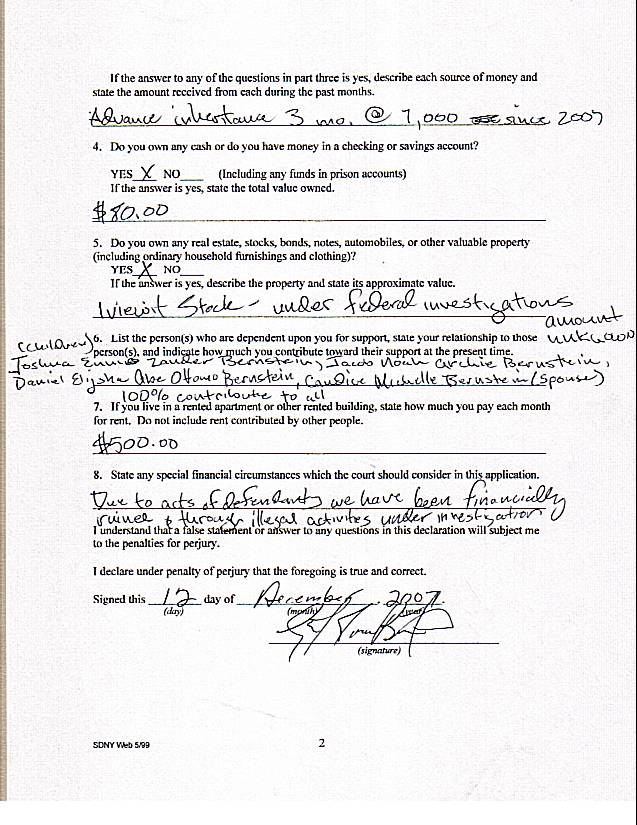 If the answer to any of the questions in part three is yes, describe each source of money and
state the amount received from each during the past months.
Advance inheritance 3 mo. @ 7,000 since 2007
4. Do you own any cash or do you have money in a checking or savings account?
YES X NO___ (Including any funds in prison accounts)
If the answer is yes, state the total value owned.
$80.00
5. Do you own any real estate, stocks, bonds, notes, automobiles, or other valuable property
(including ordinary household furnishings and clothing)?
YES X NO___
If the answer is yes, describe the property and state its approximate value.
Iviewit Stock - under federal investigations
amount
unknown
6. List the person(s) who are dependent upon you for support, state your relationship to those
person(s), and indicate how much you contribute toward their support at the present time.
(children)
Joshua Ennio Zander Bernstein, Jacob Noah Archie Bernstein,
Daniel Elijsha Abe Ottomo Bernstein, Candice Michelle Bernstein (Spouse)
100% contribute to all
7. If you live in a rented apartment or other rented building, state how much you pay each month
for rent. Do not include rent contributed by other people.
$500.00
8. State any special financial circumstances which the court should consider in this application.
Due to acts of defendants we have been financially
ruined & through illegal activites under investigation
I understand that a false statement or answer to any questions in this declaration will subject me
to the penalties for perjury.
I declare under penalty of perjury that the foregoing is true and correct.
Signed this 12 day of December, 2007.
(day) (month) (year)
(signature)
SDNY Web 5/99 2